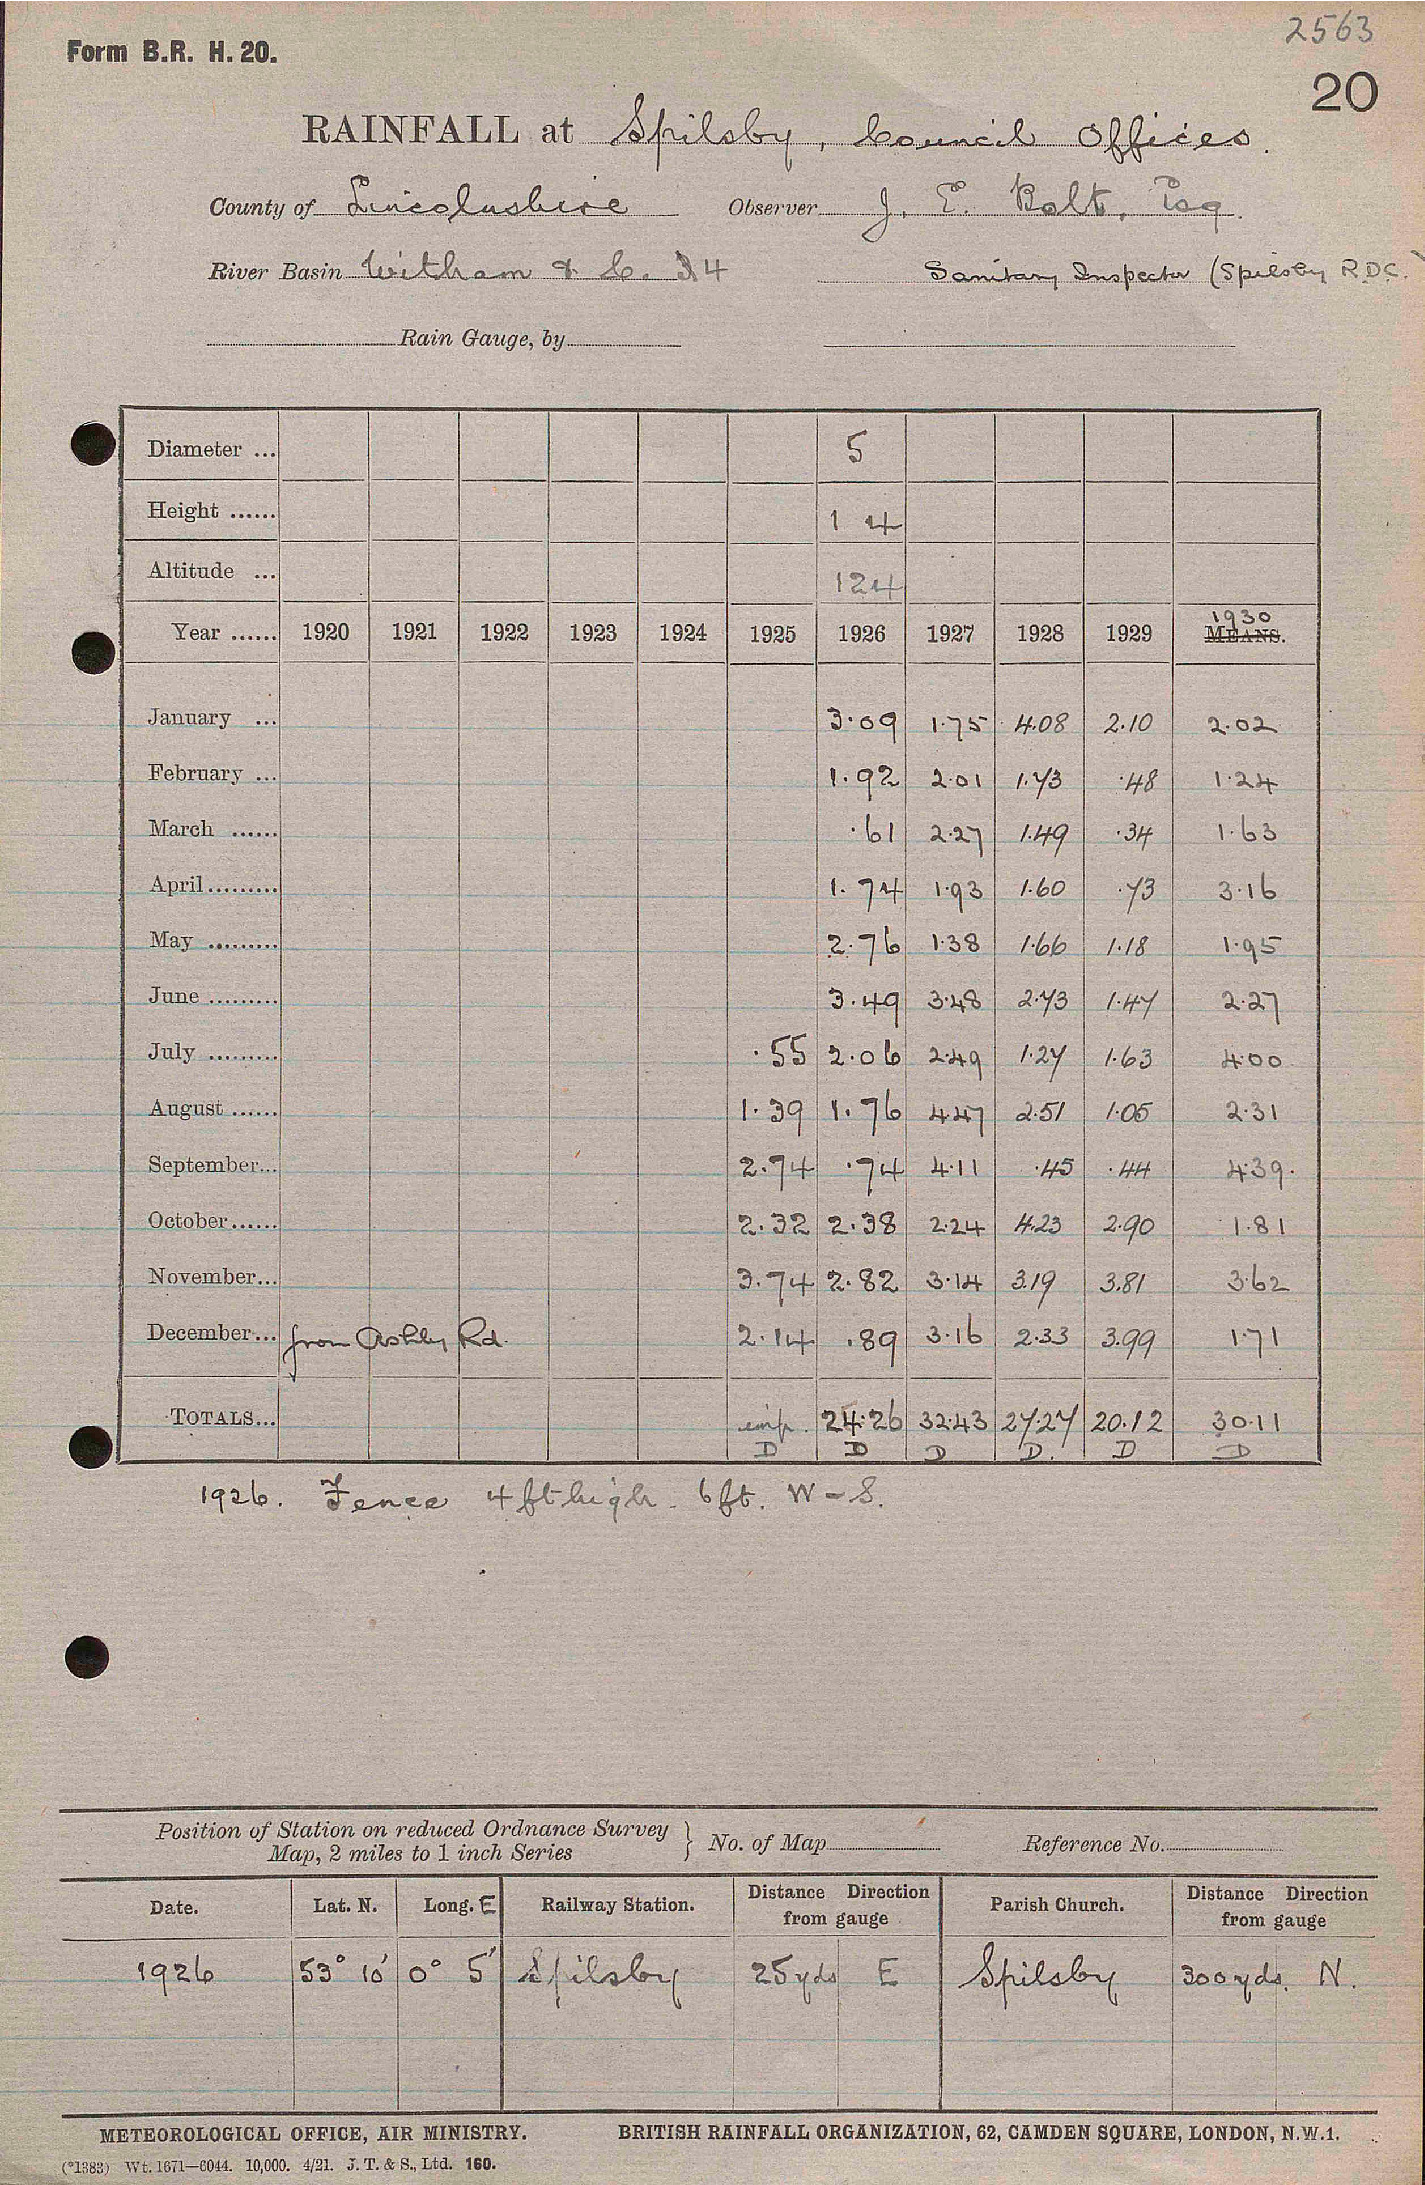 2563
Form B.R. H. 20.
20
RAINFALL at Spilsby, Council Offices.
County of Lincolnshire Observer J. E. Bolt, Esq.
River Basin Witham & C. 4 Sanitary Inspector (Spilsby R.D.C.)
Rain Gauge, by
Diameter ... 5
Height ...... 1 4
Altitude ... 124
Year ...... 1920 1921 1922 1923 1924 1925 1926 1927 1928 1929 1930 MEANS.
January ... 3.09 1.75 4.08 2.10 2.02
February ... 1.92 2.01 1.73 .48 1.24
March ...... .61 2.27 1.49 .34 1.63
April ......... 1.74 1.93 1.60 .73 3.16
May ......... 2.76 1.38 1.66 1.18 1.95
June ......... 3.49 3.48 2.73 1.47 2.27
July ......... .55 2.06 2.49 1.27 1.63 4.00
August ...... 1.39 1.76 4.47 2.51 1.05 2.31
September... 2.74 .74 4.11 .45 .44 4.39.
October...... 2.32 2.38 2.24 4.23 2.90 1.81
November... 3.74 2.82 3.14 3.19 3.81 3.62
December... from Ashby Rd. 2.14 .89 3.16 2.33 3.99 1.71
TOTALS... imp. 24.26 32.43 27.27 20.12 30.11
D D D D. D D
1926. Fence 4ft high. 6ft. W - S.
Position of Station on reduced Ordnance Survey
Map, 2 miles to 1 inch Series } No. of Map Reference No.
Date. Lat. N. Long. E Railway Station. Distance Direction from gauge Parish Church. Distance Direction from gauge
1926 53° 10' 0° 5' Spilsby 25 yds E Spilsby 300 yds. N.
METEOROLOGICAL OFFICE, AIR MINISTRY. BRITISH RAINFALL ORGANIZATION, 62, CAMDEN SQUARE, LONDON, N.W.1.
(*1383) Wt. 1671—6044. 10,000. 4/21. J. T. & S., Ltd. 160.